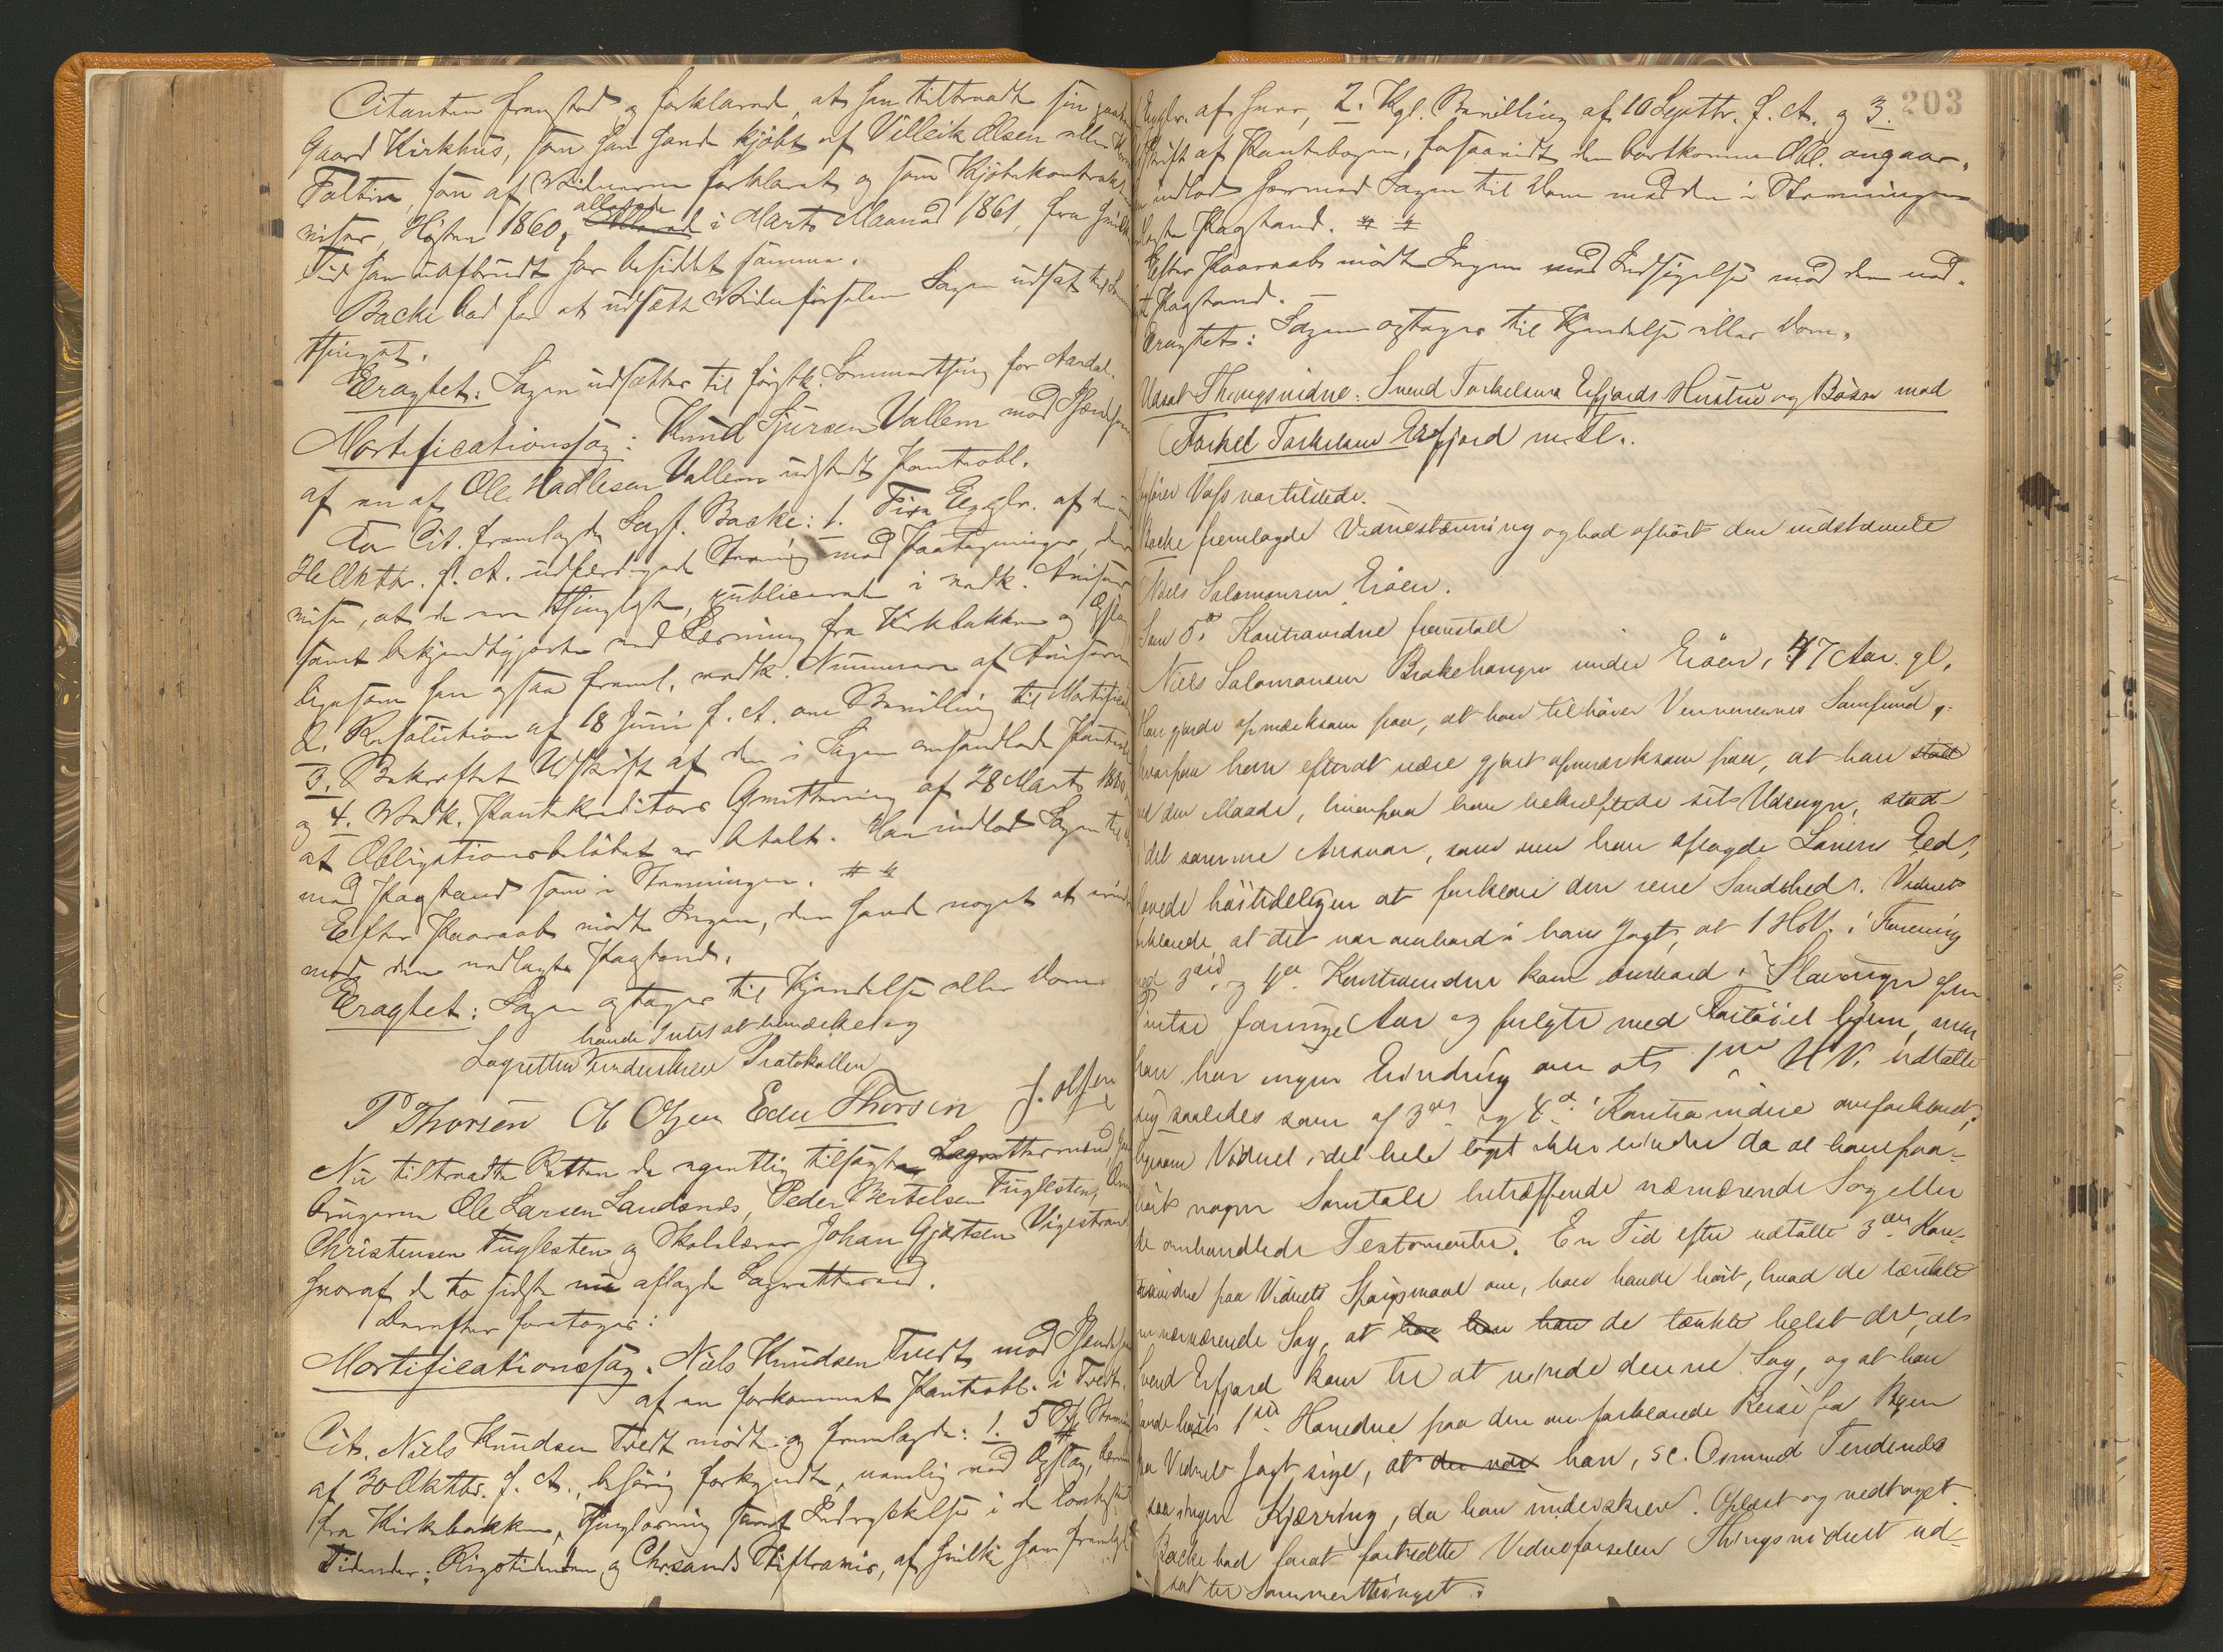 Citanten fremstod og forklarede, at han tiltraadte sin
Gaard Kirkhus, som han havde kjøbt af Villeik Olsen
som af Vidnerne forklaret og som Kjøbekontrakten
viser, Høsten 1860, allerede i Marts Maaned 1861, fra hvilken
Tid han uafbrudt har besiddet samme.
Backe bad for at udsætte Vidneførselen Sagen udsat til
thinget.
Eragtet: Sagen udsættes til førstk. Sommerthing for Aardal.
Mortificationssag: Knud Sjursen Vallem mod Ihændehaveren
af en af Ole Hadlesen Vallem udstedt Pantobl.
For Cit. fremlagde Sagf. Backe: 1. Fire Exeplr. af den
Oktbr. f. A. udfærdigede Stævning med Paategninger, der
viser, at de ere thinglyst, publiceret i vedk. Aviser
samt bekjendtgjorte ved Læsning fra Kirkebakken og Opslag
ligesom han ogsaa freml. vedk. Nummere af Aviserne
2. Resolution af 18 Juni f. A. om Bevilling til Mortification
3. Bekræftet Udskrift af den i Sagen omhandlede Pantobl.
og 4. Vedk. Pantekreditors Qvittering af 28 Marts 1880,
at Obligationsbeløbet er betalt. Han indlod Sagen til
med Paastand som i Stævningen. # #
Efter Paaraab mødte Ingen, der havde noget at erindre
mod den nedlagte Paastand.
Eragtet: Sagen optages til Kjendelse eller Dom.
havde Intet at bemærke og
Lagretten underskrev Protokollen
T Thorsen O Olsen Eden Thorsen J. Olsen
Nu tiltraadte Retten de egentlig tilsagte Lagrettemænd,
brugerne Ole Larsen Landsnes, Peder Bertelsen Fuglesten,
Christensen Fuglesten og Skolelærer Johan Gjertsen Vigestrand
hvoraf de to sidste nu aflagde Lagretteed.
Derefter foretages:
Mortificationssag. Niels Knudsen Tvedt mod Ihændehaveren
af en forkommet Pantobl. i Tvedt.
Cit. Niels Knudsen Tvedt mødte og fremlagde: 1. 5
af 30 Oktbr. f. A., behørig forkyndt, nemlig ved Opslag,
fra Kirkebakken, Thinglæsning samt Indrykkelse i de
Tidender: Rigstidenden og Chr.sands Stiftsavis, af hvilke han fremlagde
203
Explr. af hver, 2. Kgl. Bevilling af 10 Septbr. f. A. og 3.
skrift af Pantebogen, forsaavidt den bortkomne Obl. angaar.
indlod hermed Sagen til Dom med den i Stævningen
Paastand. # #
Efter Paaraab mødte Ingen med Indsigelse mod den ned-
Paastand. —
Eragtet: Sagen optages til Kjendelse eller Dom.
Udsat Thingsvidne: Svend Torkelsens Erfjords Hustru og Børn mod
Torkel Torkelsen Erfjord m. fl.
Voss var tilstede.
Backe fremlagde Vidnestævning og bad afhørt den indstævnte
Niels Salomonsen Erøen.
Som 5te Kontravidne fremstod
Niels Salomonsen Brakehaugen under Erøen, 47 Aar gl.
Han gjorde opmærksom paa, at han tilhører Vennernes Samfund,
hvorpaa han efterat være gjort opmærksom paa, at han stod
ved den Maade, hvorpaa han bekræftede sit Udsagn, stod
i det samme Ansvar, som om han aflagde Lovens Eed,
lovede høitideligen at forklare den rene Sandhed. Vidnet
forklarede, at det var ombord i hans Jagt, at 1 H.V. i Forening
med 3die og 4de Kontravidne kom ombord i Stavanger
Pintse forrige Aar og fulgte med Fartøiet hjem, men
han har ingen Erindring om at 1ste H.V. udtalte
sig saaledes som af 3die og 4de Kontravidne omforklaret,
ligesom Vidnet i det hele taget ikke erindrer da at have paa-
hørt nogen Samtale betræffende nærværende Sag eller
de omhandlede Testamenter. En Tid efter udtalte 3die Kon-
travidne paa Vidnets Spørgsmaal om, han havde hørt, hvad de tænkte
om nærværende Sag, at han han han de tænkte helst det, at
Svend Erfjord kom til at vinde denne Sag, og at han
havde hørt 1ste Hovedvidne paa den omforklarede Reise fra Byen
paa Vidnets Jagt sige, at der var han, sc. Osmund Tendenes
saa ingen Kjærring, da han underskrev. Oplæst og vedtaget.
Backe bad forat fortsætte Vidneførselen Thingsvidnet ud-
sat til Sommerthinget.